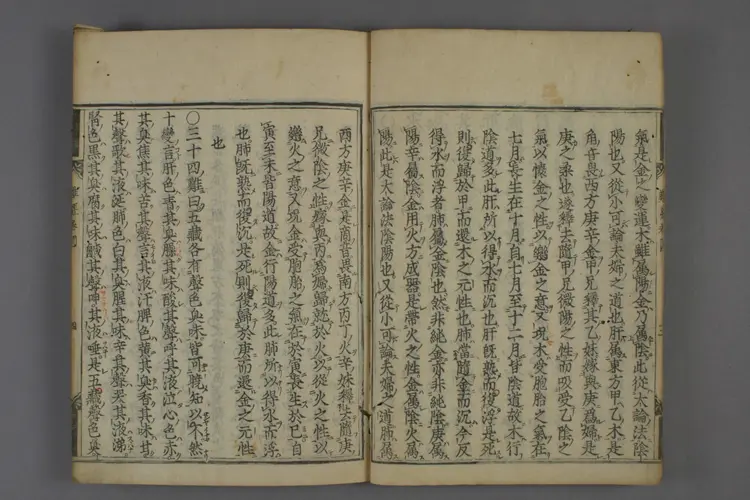 氣是金之變運木雖屬陽金乃屬陰此從大論法陰
陽也又從小可論夫婦之道也肝屬東方甲乙木是
角音畏西方庚辛金甲兄釋其乙妹嫁與庚爲婦是
庚之柔也遂釋去隨甲兄微陽之性而吸受乙陰之
氣以懷金之性以戀金之意又況木受胞胎之氣在
七月長生在十月自七月至十二月皆陰道故木行
陰道多此肝所以得水而沉也肝既熟而復浮是死
則復歸於甲而還木之元性也肺當隨金而沉今反
得水而浮者肺屬金陰也然非純金亦非純陰庚屬
陽辛屬陰金用火方成器是帶火之性金屬陰火屬
陽此是大論法陰陽也又從小可論夫婦之道肺屬
西方庚辛金是商音畏南方丙丁火辛妹釋去商庚
兄微陰之性嫁與丙爲婦歸就於火以從火之性以
戀火之意又況金受胞胎之氣在於寅長生於巳自
寅至未皆陽道故金行陽道多此肺所以得水而浮
也肺既熟而復沉是死則復歸於庚而還金之元性
也
〇三十四難曰五藏各有聲色臭味皆可曉知以不然
十變言肝色青其臭臊其味酸其聲呼其液泣心色赤
其臭焦其味苦其聲言其液汗脾色黃其臭香其味甘
其聲歌其液涎肺色白其臭腥其味辛其聲哭其液涕
腎色黑其臭腐其味鹹其聲呻其液唾是五藏聲色臭